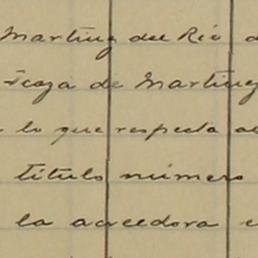 Martinez del Rio d
Icaza de Martinez
lo que respecta al
título número
la acreedora e